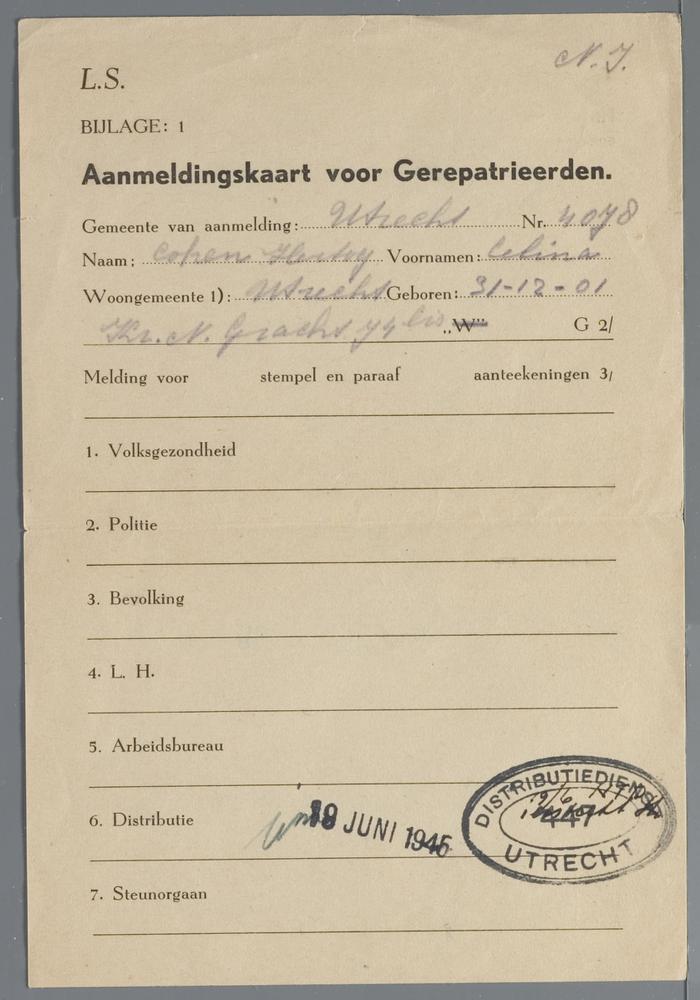 N. I.
L.S.
BIJLAGE: 1
Aanmeldingskaart voor Gerepatrieerden.
Gemeente van aanmelding: Utrecht Nr. 4078
Naam: Cohen Hertog Voornamen: Celina
Woongemeente 1): Utrecht Geboren: 31-12-01
Kr. N. Gracht 74 bis „W” G 2/
Melding voor stempel en paraaf aanteekeningen 3/
1. Volksgezondheid
2. Politie
3. Bevolking
4. L. H.
5. Arbeidsbureau
6. Distributie
JUNI 1945
DISTRIBUTIEDIENST
447
UTRECHT
7. Steunorgaan